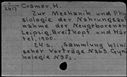 Cramer, H.
Zur Mechanik und Phy-
siologie der Nahrungsauf-
nahme der Neugeborenen.
Leipzig, Breitkopf und Här-
tel, 1900.
(IN: Sammlung klini-
scher Vorträge N263, Gynä-
kologie N°